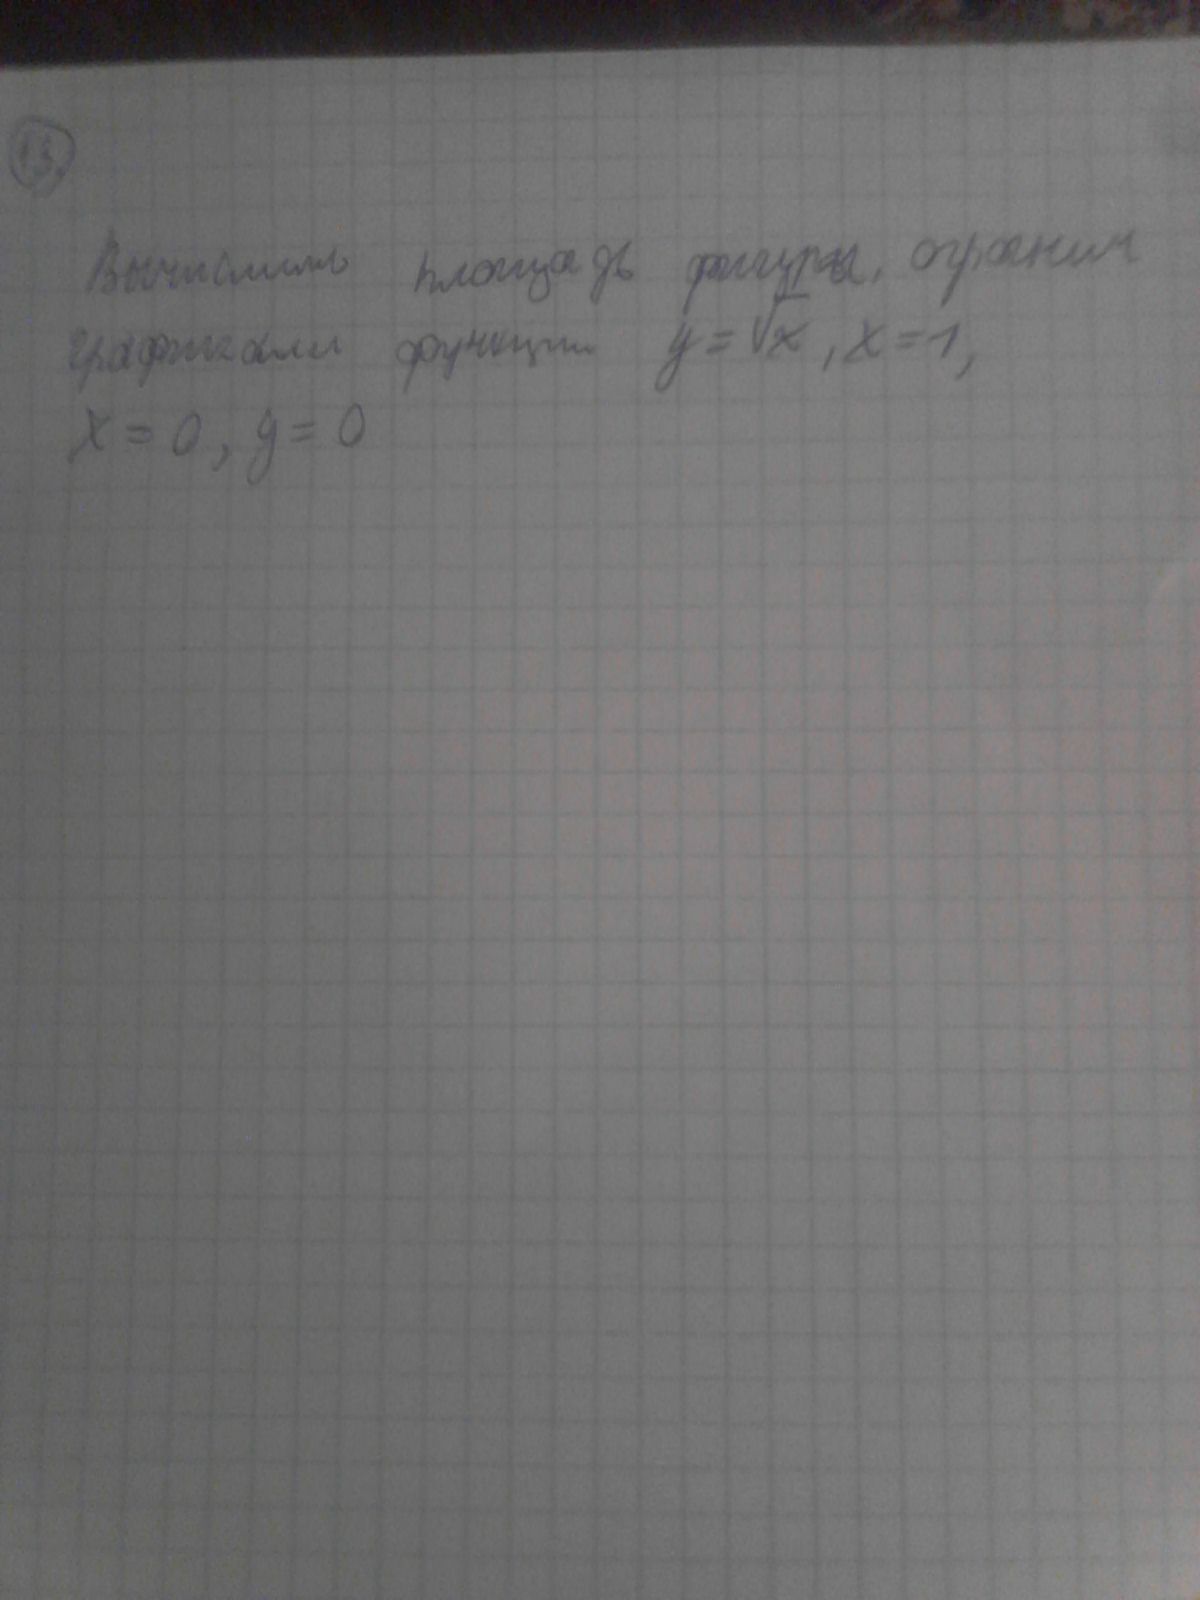 13.
Вычислить площадь фигуры, огранич
графиками функции y = √x, x = 1,
x = 0, y = 0